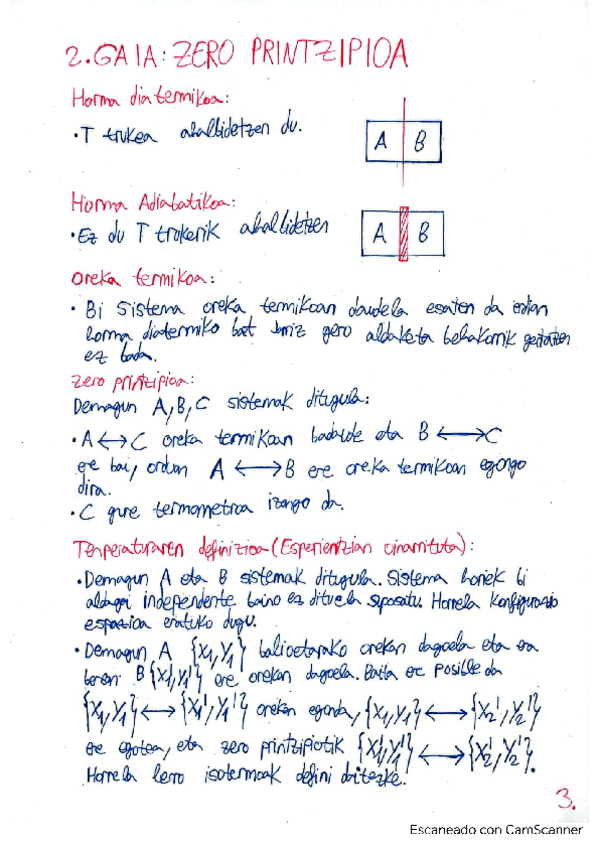 2.GAIA: ZERO PRINTZIPIOA
Horma diatermikoa:
• T trukea ahalbidetzen du.
A B
Horma Adiabatikoa:
• Ez du T trukerik ahalbidetzen
A B
Oreka termikoa:
• Bi sistema oreka termikoan daudela esaten da edian
horma diatermiko bat jarriz gero aldaketa behakorrik gertatzen
ez bada.
Zero printzipioa:
Demagun A, B, C sistemak ditugula:
• A ↔ C oreka termikoan badaude eta B ↔ C
ere bai, orduan A ↔ B ere oreka termikoan egongo
dira.
• C gure termometroa izango da.
Tenperaturaren definizioa (Esperientzian oinarrituta):
• Demagun A eta B sistemak ditugula. Sistema horiek bi
aldagai independente baino ez dituela suposatu. Horrela konfigurazio
espazioa eratuko dugu.
• Demagun A {X1, Y1} balioetarako orekan dagoela eta era
berean B {X1', Y1'} ere orekan dagoela. Baita ere posible da
{X1, Y1} ↔ {X1', Y1'} orekan egonda, {X1, Y1} ↔ {X2', Y2'}
ere egotea, eta zero printzipiotik {X1', Y1'} ↔ {X2', Y2'}.
Horrela lerro isotermoak defini daitezke.
3.
Escaneado con CamScanner